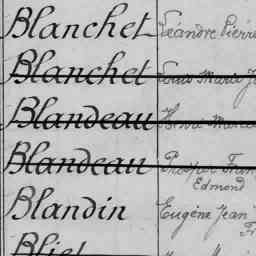 Blanchet Léandre Pierre
Blanchet Louis Marie
Blandeau Henri Marie
Blandeau Prosper Fran
Edmond
Blandin Eugène Jean
Bliet